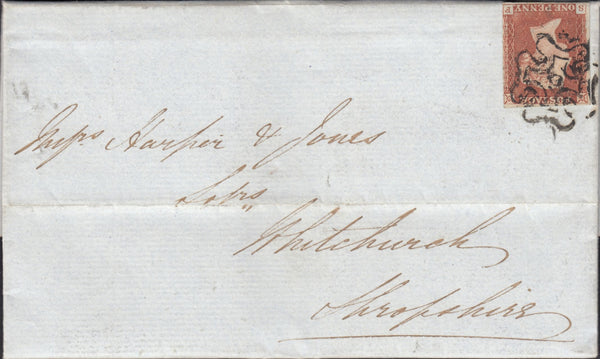 ONE PENNY
POSTAGE
Messrs Harper & Jones
Solrs
Whitchurch
Shropshire